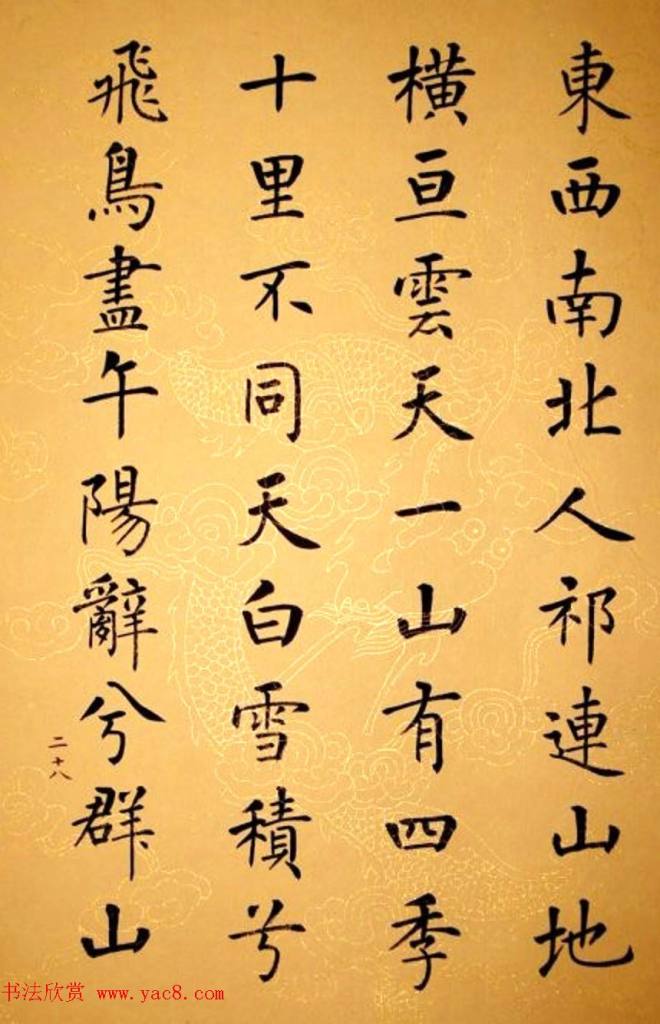 東西南北人祁連山地
橫亘雲天一山有四季
十里不同天白雪積兮
飛鳥盡午陽辭兮群山
二十八
书法欣赏 www.yac8.com